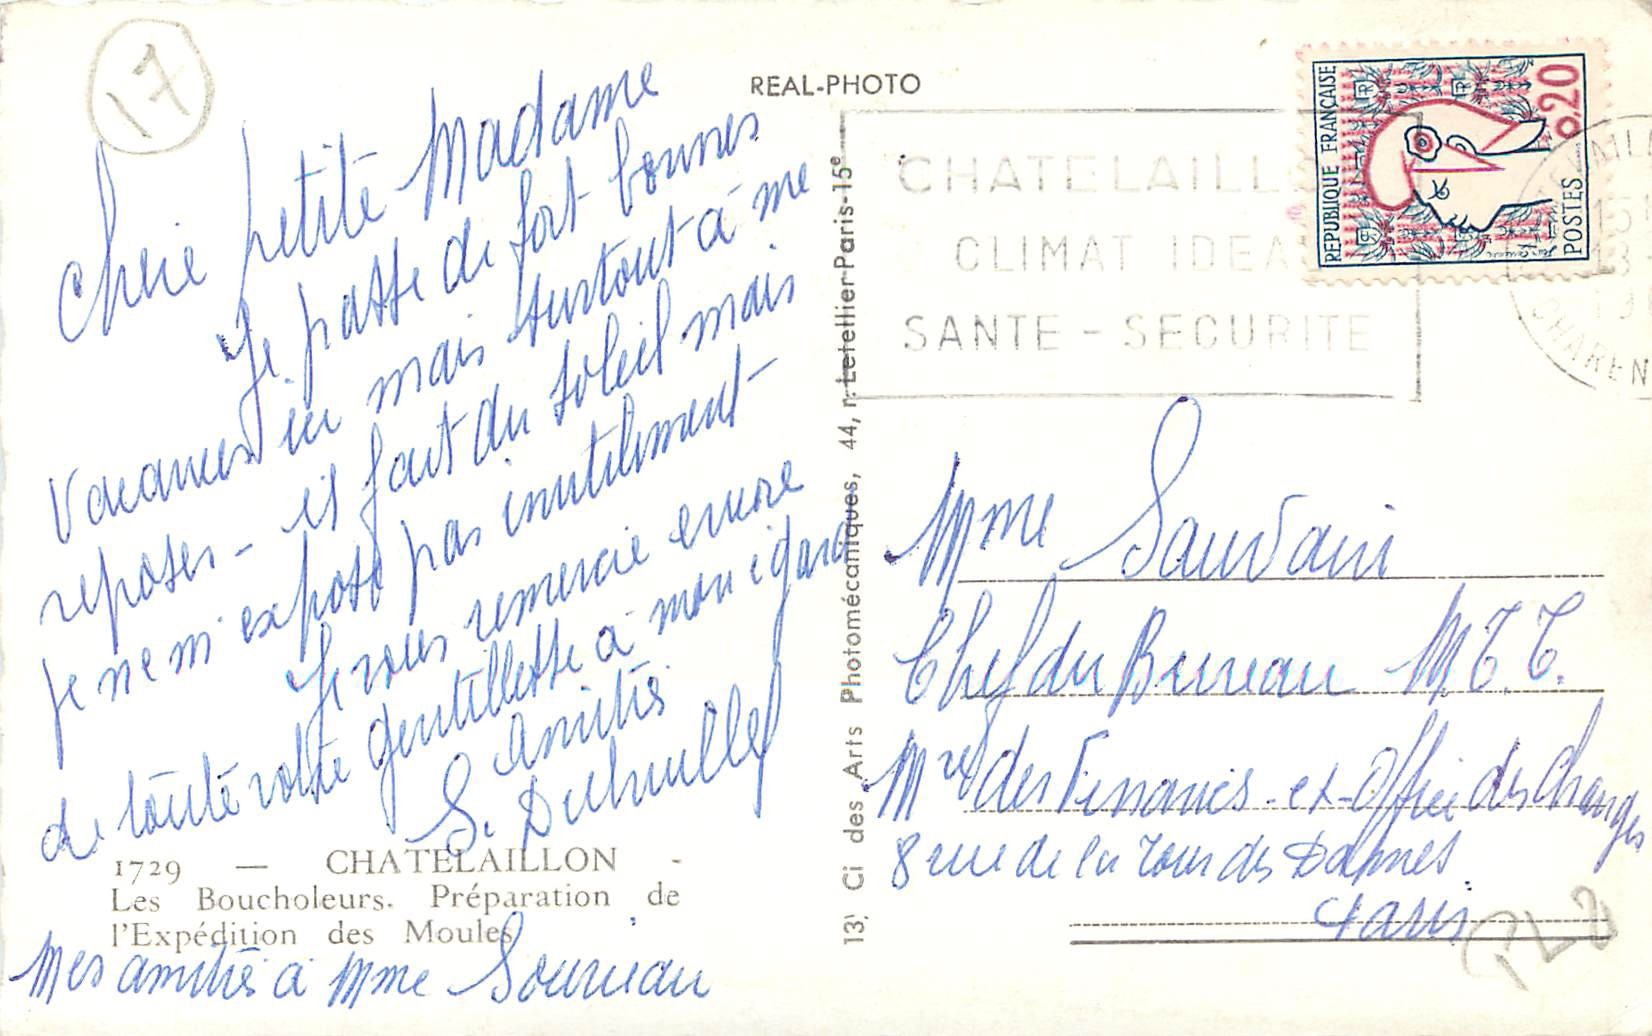 17
REAL-PHOTO
Chere petite Madame
Je passe de fort bonnes
vacances ici mais surtout à me
reposer - il fait du soleil mais
je ne m'expose pas inutilement -
Je vous remercie encore
de toute votre gentillesse à mon égard
Amitiés
S.
1729 — CHATELAILLON -
Les Boucholeurs. Préparation de
l'Expédition des Moules
Mes amitiés à Mme
13, Ci des Arts Photomécaniques, 44, r. Letellier Paris-15e
CHATELAILLO
CLIMAT IDEA
SANTE - SECURITE
REPUBLIQUE FRANÇAISE
0,20
POSTES
CHAREN
Mme Sauvain
Chef du Bureau M.T.T.
Mre des Finances - ex-Office des Changes
8 rue de la Tour des Dames
Paris